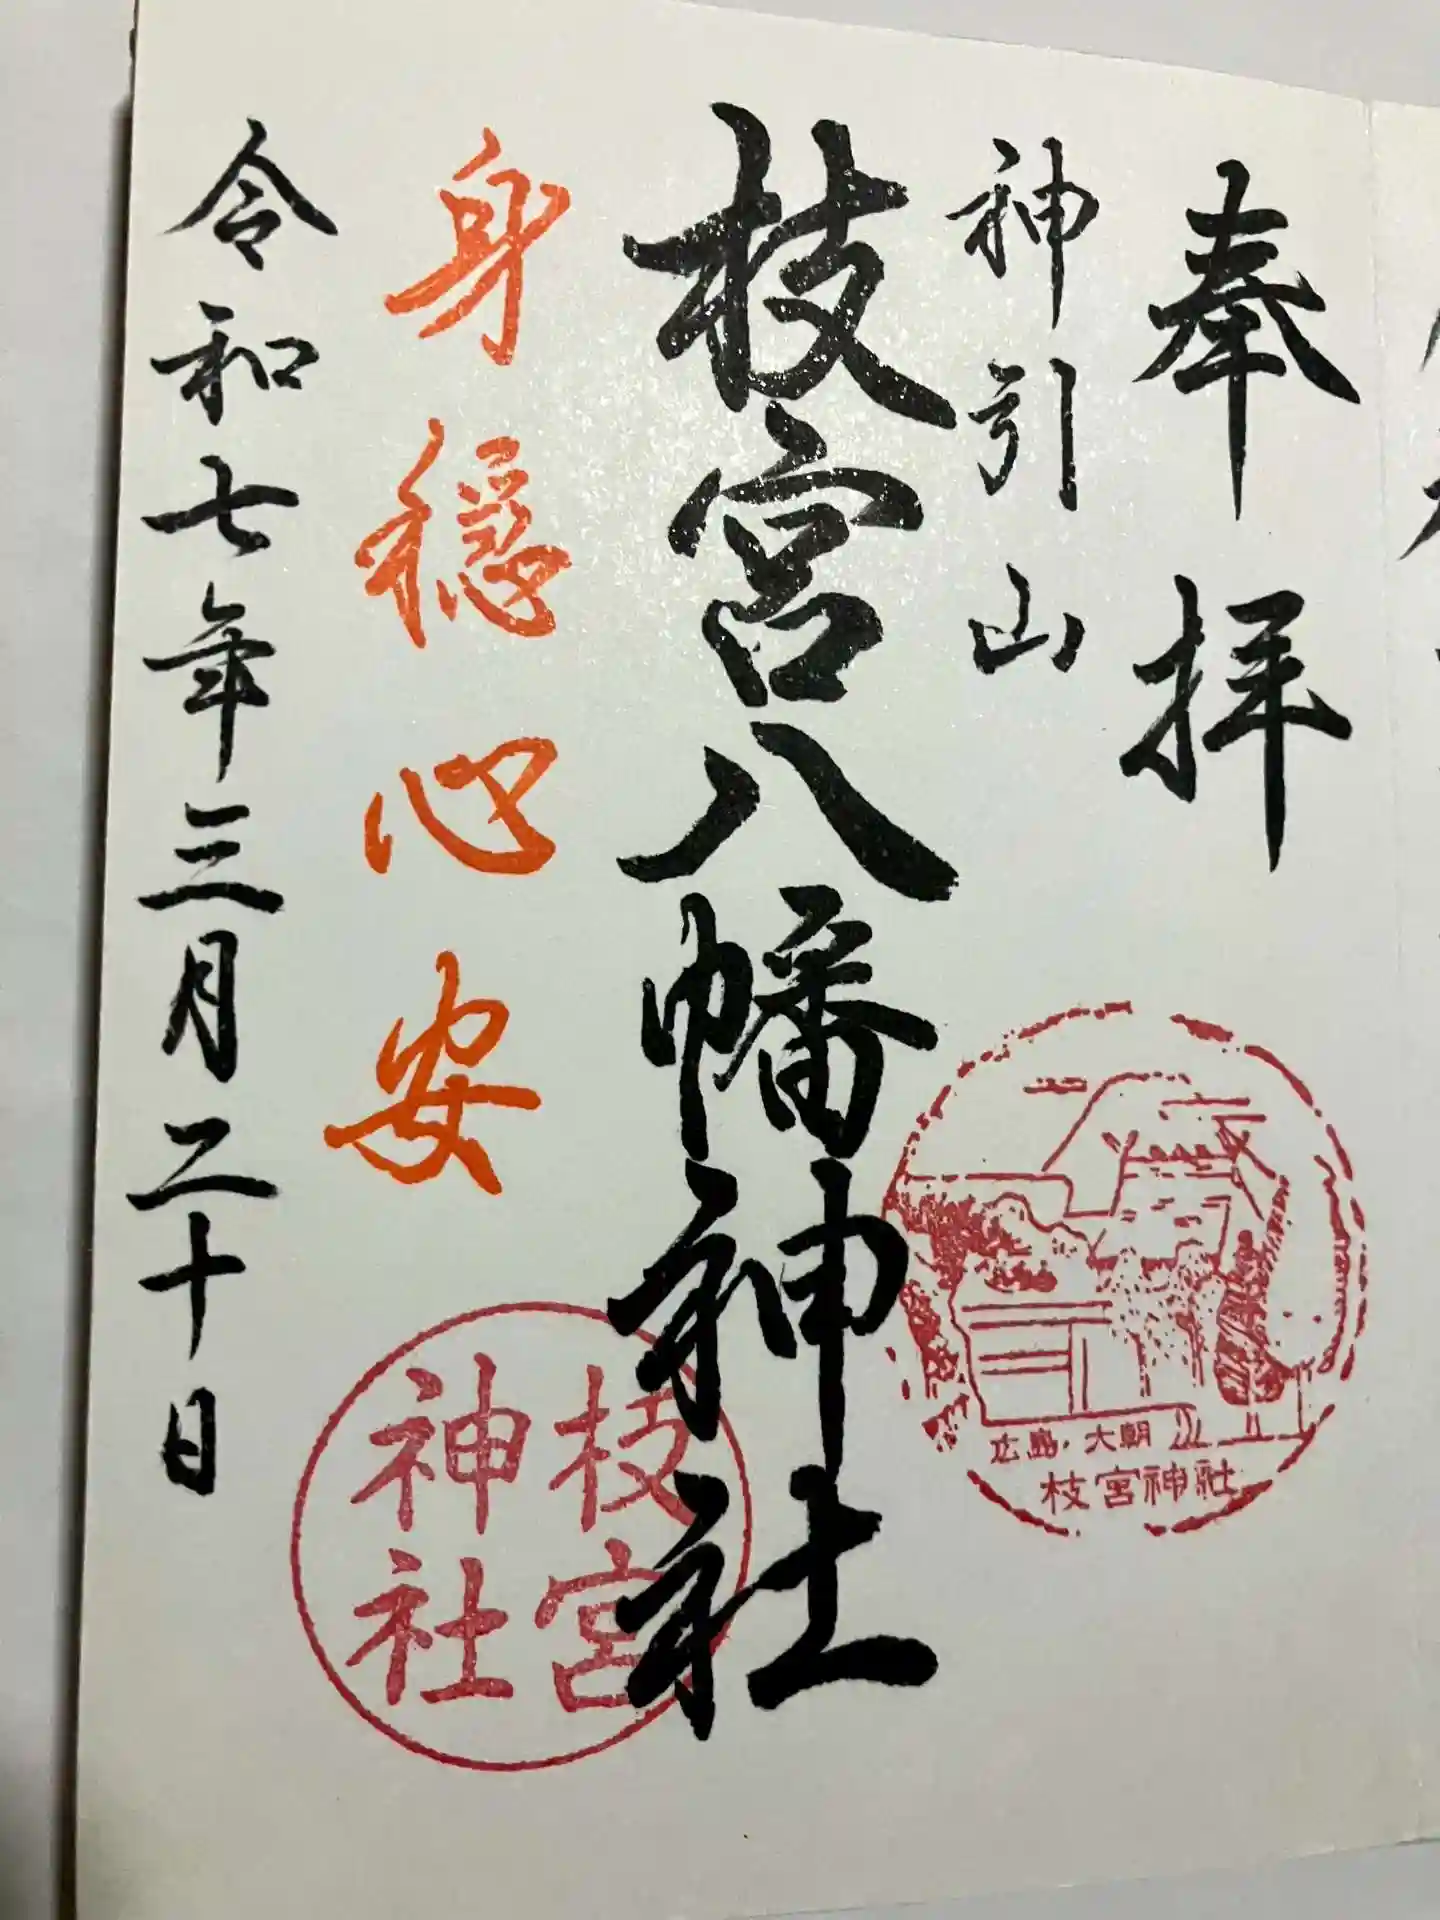 奉拝
神引山
枝宮八幡神社
身穏心安
令和七年三月二十日
広島・大朝
枝宮神社
枝宮
神社